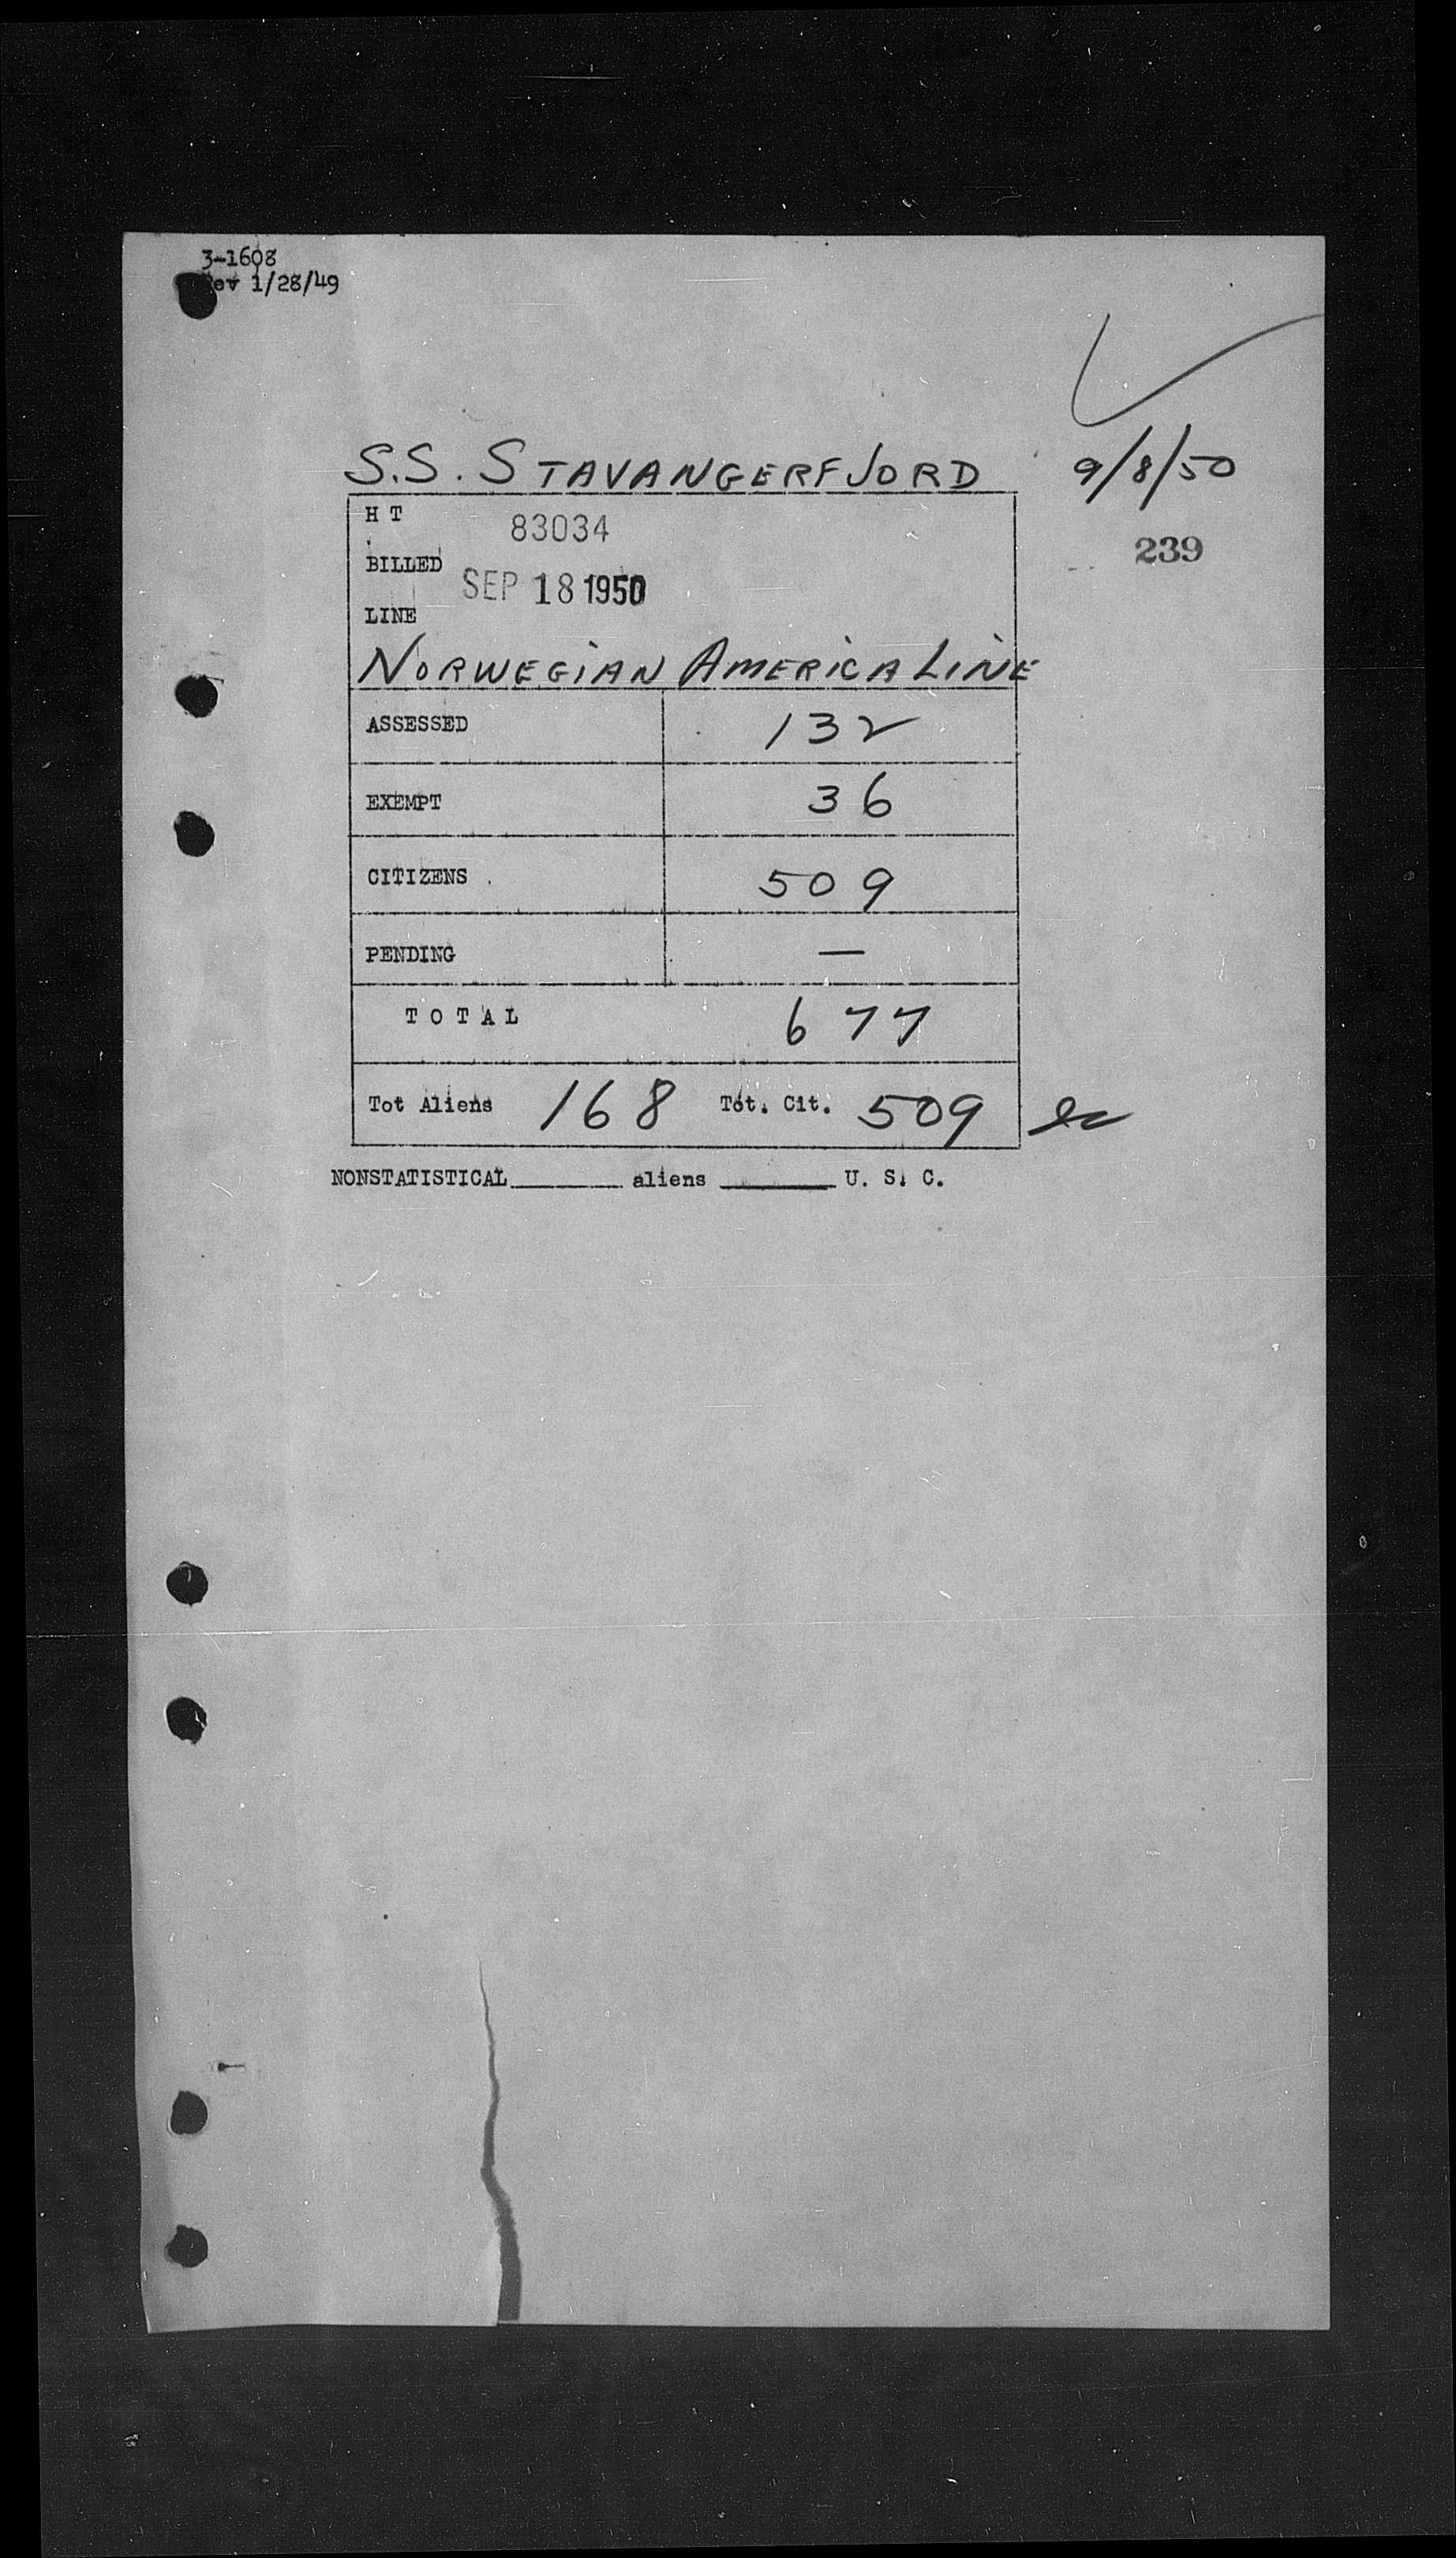 3-1608
ev 1/28/49
S.S. STAVANGERFJORD 9/8/50
H T 83034
239
BILLED SEP 18 1950
LINE
NORWEGIAN AMERICA LINE
ASSESSED 132
EXEMPT 36
CITIZENS 509
PENDING —
TOTAL 677
Tot Aliens 168 Tot. Cit. 509
NONSTATISTICAL_______ aliens _______ U. S. C.